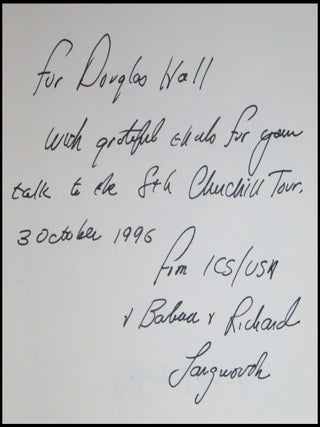 For Douglas Hall
With grateful thanks for your
talk to the 8th Churchill Tour.
3 October 1996
from ICS/USA
& Barbara & Richard
Langworth